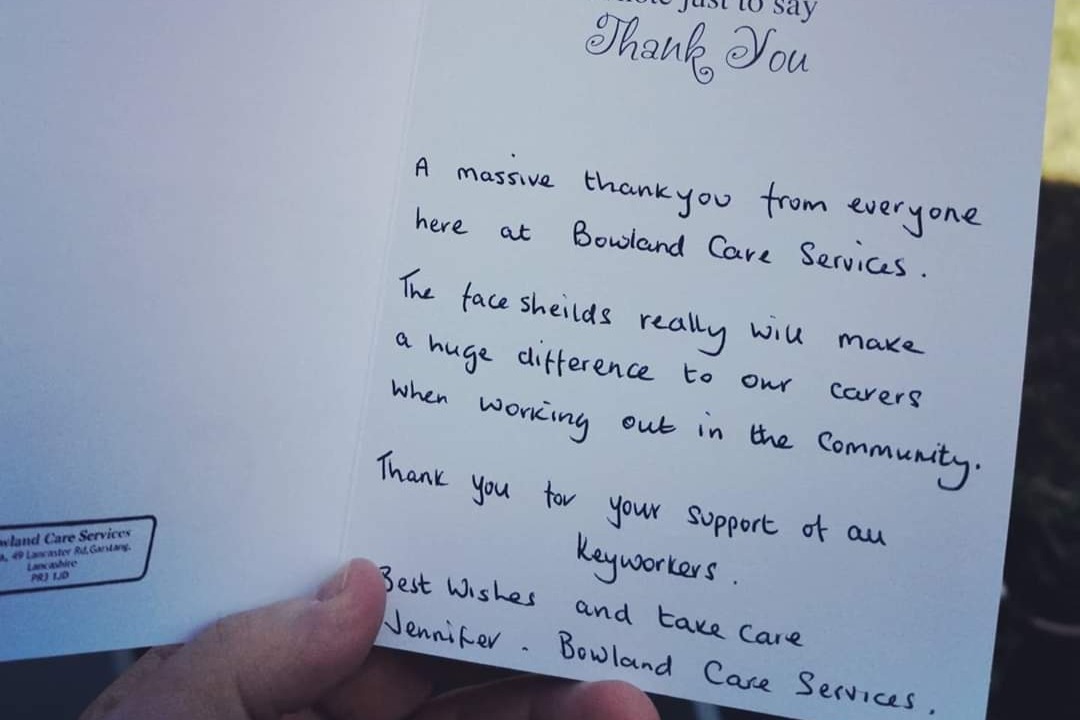 just to say
Thank You
A massive thankyou from everyone
here at Bowland Care Services.
The face sheilds really will make
a huge difference to our carers
when working out in the Community.
Thank you for your support of all
Keyworkers.
Best Wishes and take care
Jennifer. Bowland Care Services.
wland Care Services
49 Lancaster Rd, Garstang,
Lancashire
PR3 1JD